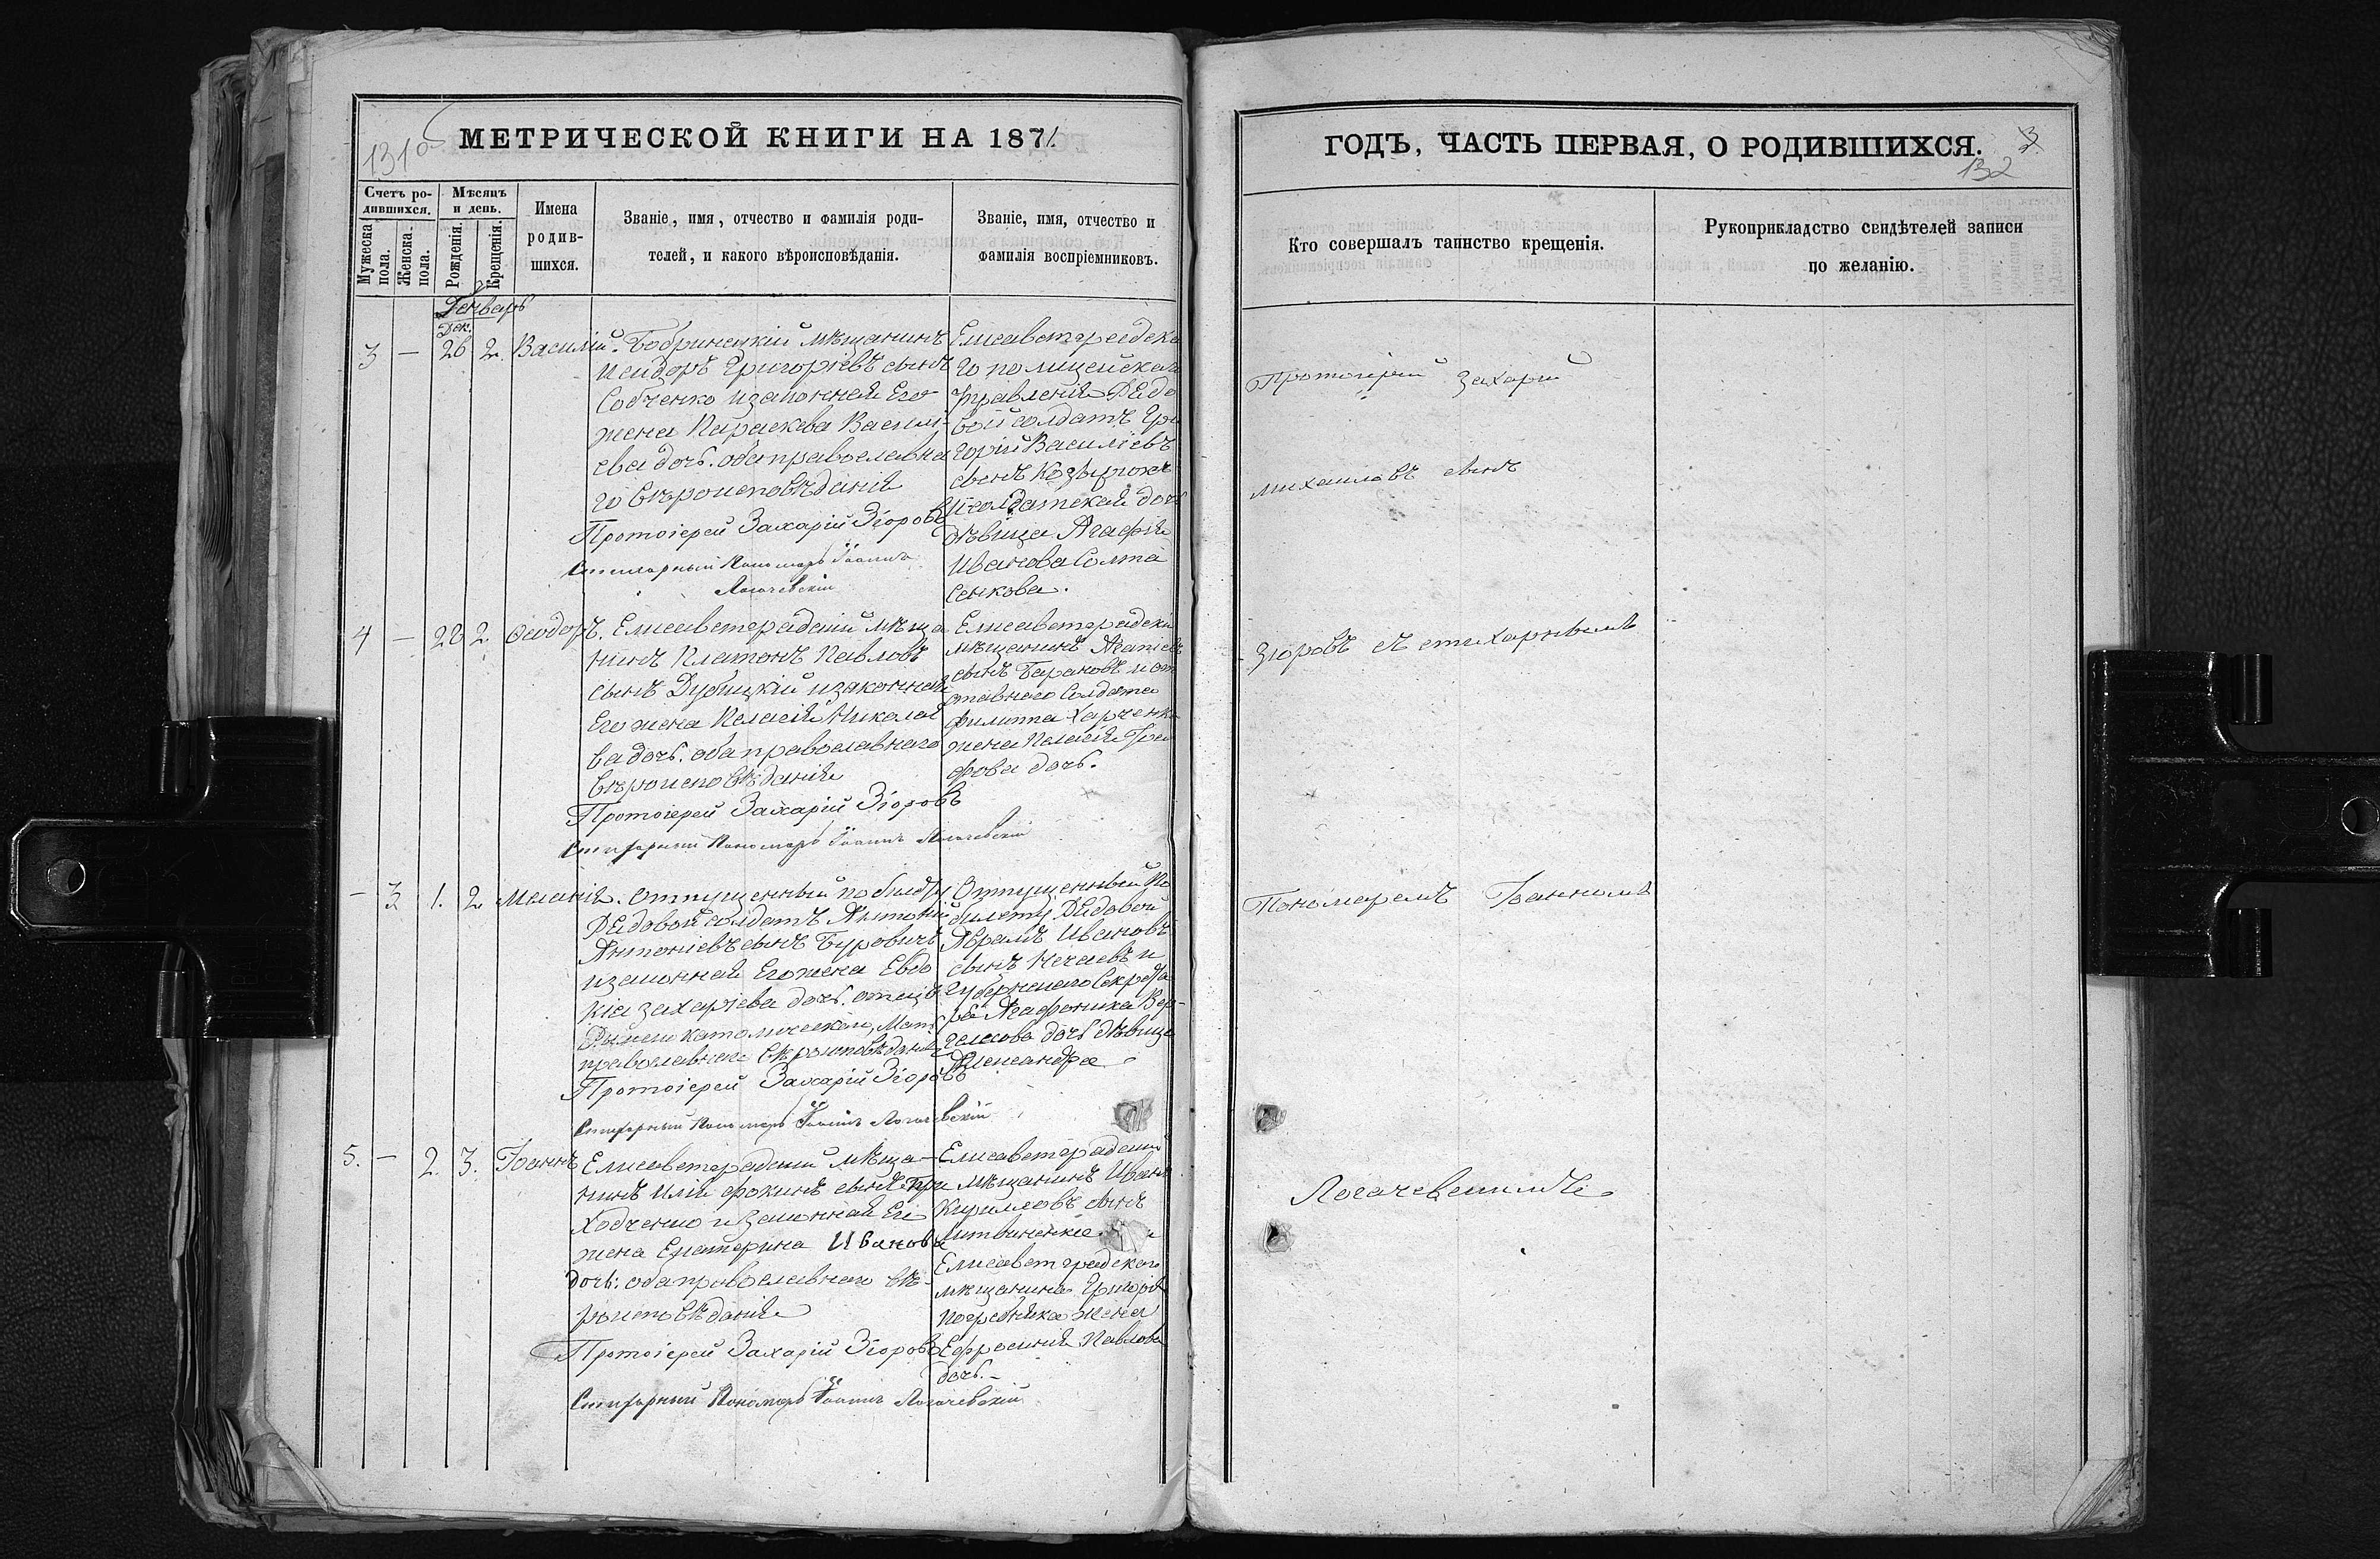 131 об
МЕТРИЧЕСКОЙ КНИГИ НА 1871
Счетъ ро-
дившихся.
Мужеска
пола.
Женска.
пола.
Мѣсяцъ
и день.
Рожденія.
Крещенія.
Имена
родив-
шихся.
Званіе, имя, отчество и фамилія роди-
телей, и какого вѣроисповѣданія.
Званіе, имя, отчество и
фамилія воспріемниковъ.
Генварь
Дек.
3 — 26 2. Василій.
Бобринецкій мѣщанинъ
Исидоръ Григоріевъ сынъ
Собченко изаконная Его
жена Параскева Василі-
ева дочь. оба православна
го вѣроисповѣданія
Протоіерей Захарій Згоровъ
Стихарный Пономарь Іоаннъ
Логачевскій
Елисаветградска
го полицейскаго
Управленія Рядо
вой солдатъ Гри
горій Василіевъ
сынъ
И солдатская дочь
дѣвица Агафія
Иванова Солта
сенкова.
4 — 28 2. Ѳеодоръ.
Елисаветградскій мѣща
нинъ Платонъ Павловъ
сынъ Дубицкій изаконная
Его жена Пелагія Николае
ва дочь. оба православнаго
вѣроисповѣданія
Протоіерей Захарій Згоровъ
Стихарный Пономарь Іоаннъ Логачевскій
Елисаветградскій
мѣщанинъ
сынъ Барановъ и от
ставного Солдата
Филиппа Харченка
жена Пелагія
фова дочь.
— 3 1. 2 Меланія.
Отпущенный по билету
Рядовой солдатъ Антоній
Антоніевъ сынъ Буровичъ
изаконная Его жена Евдо
кіа Захаріева дочь. отецъ
Римско католическаго, Мать
православнаго вѣроисповѣданія
Протоіерей Захарій Згоровъ
Стихарный Пономарь Іоаннъ Логачевскій
Отпущенный по
билету Рядовой
Аврамъ Ивановъ
сынъ Нечаевъ и
Губернскаго Секрета
ря Агафоника Вер-
гелисова дочь дѣвица
Александра
5. — 2. 3. Іоаннъ
Елисаветградскій мѣща-
нинъ Илія Фокинъ сынъ При
ходченко изаконная Его
жена Екатерина Иванова
дочь: оба православнаго вѣ-
роисповѣданія
Протоіерей Захарій Згоровъ
Стихарный Пономарь Іоаннъ Логачевскій
Елисаветградскій
мѣщанинъ Иванъ
Кирилловъ сынъ
Литвиненко и
Елисаветградскаго
мѣщанина Григорія
жена
Ефросинія Павлова
дочь.—
ГОДЪ, ЧАСТЬ ПЕРВАЯ, О РОДИВШИХСЯ.
3
132
Кто совершалъ таинство крещенія.
Рукоприкладство свидѣтелей записи
по желанію.
Протоіерей Захарій
Михаиловъ сынъ
Згоровъ съ стихарнымъ
Пономаремъ Іоанномъ
Логачевскимъ.